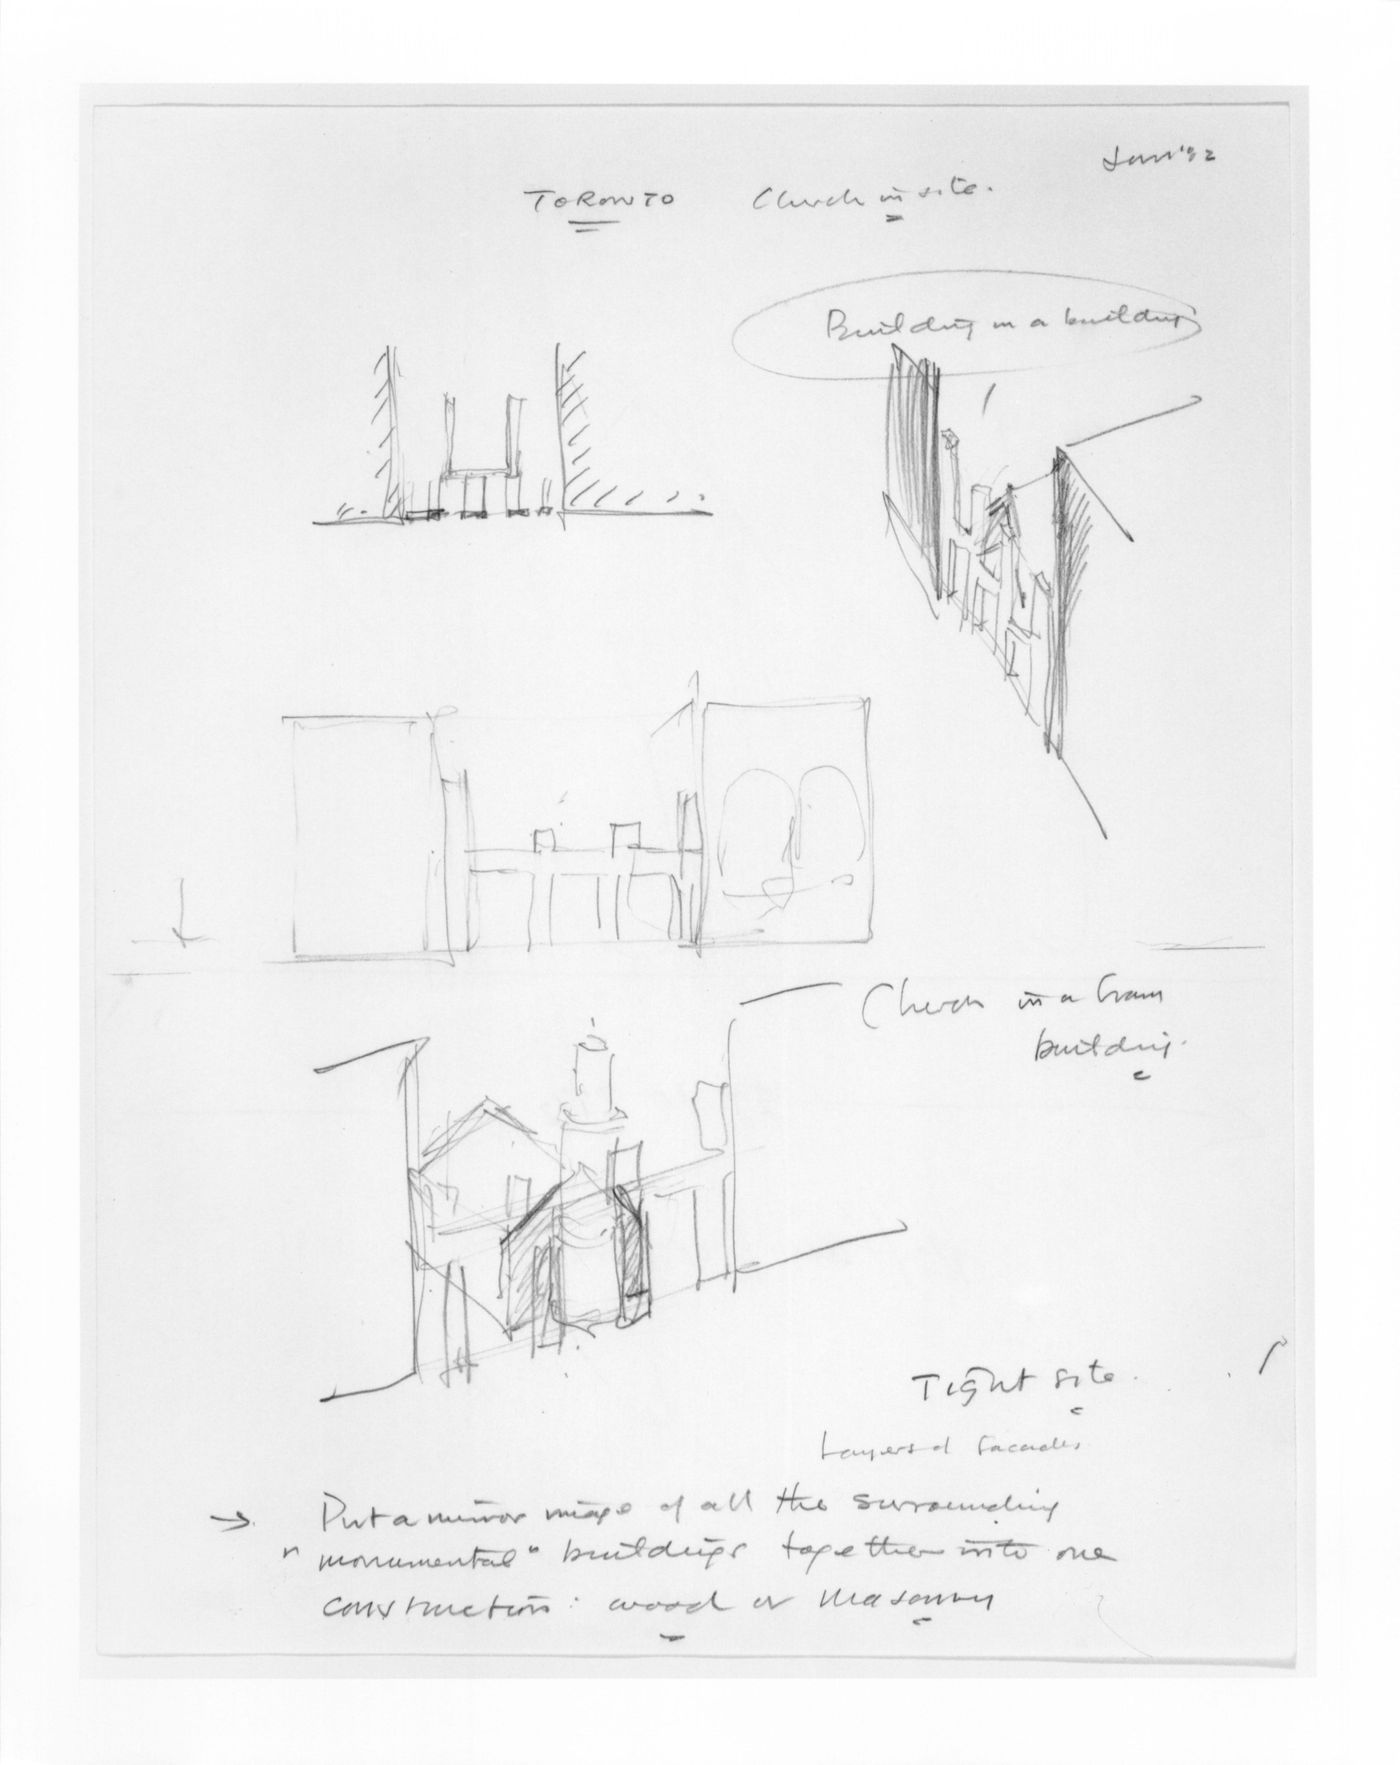 Jan '82
TORONTO Church in site.
Building in a building
Church in a
building.
Tight site.
Layered facades
→ Put a mirror image of all the surrounding
"monumental" buildings together into one
construction: wood or masonry